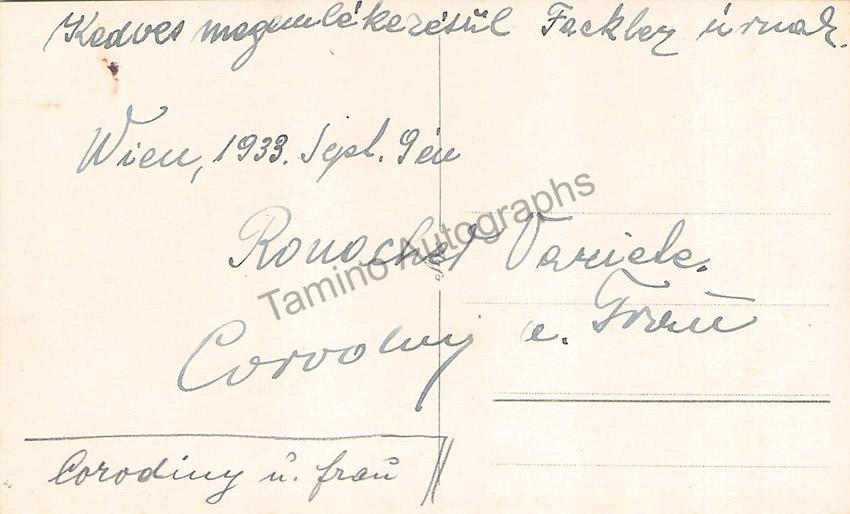 Kedves megemlékezésül Fackler úrnak.
Wien, 1933. Sept. 9én
Ronacher Variete.
Corodiny u. Frau
Corodiny u. frau
Tamino Autographs